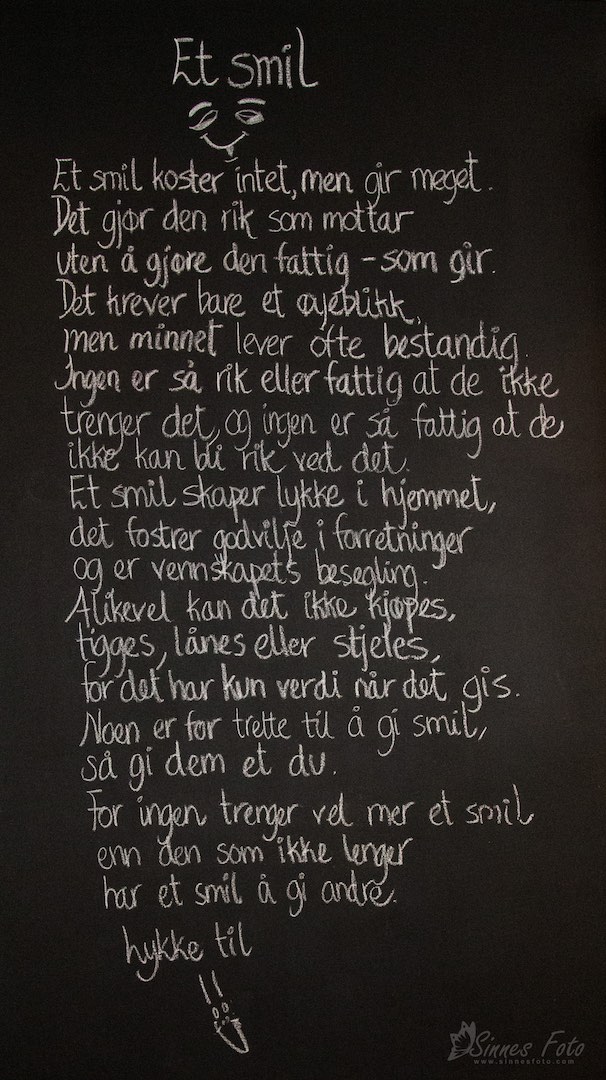 Et smil
Et smil koster intet, men gir meget.
Det gjør den rik som mottar
uten å gjøre den fattig - som gir.
Det krever bare et øyeblikk,
men minnet lever ofte bestandig.
Ingen er så rik eller fattig at de ikke
trenger det, og ingen er så fattig at de
ikke kan bli rik ved det.
Et smil skaper lykke i hjemmet,
det fostrer godvilje i forretninger
og er vennskapets besegling.
Alikevel kan det ikke kjøpes,
tigges, lånes eller stjeles,
for det har kun verdi når det gis.
Noen er for trette til å gi smil,
så gi dem et du.
For ingen trenger vel mer et smil
enn den som ikke lenger
har et smil å gi andre.
lykke til
!!
Sinnes Foto
www.sinnesfoto.com